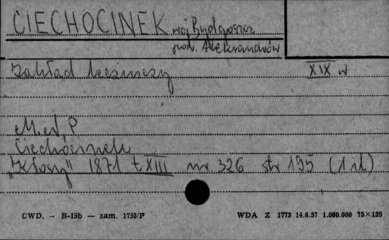 CIECHOCINEK woj. Bydgoszcz
pow. Aleksandrów
Zakład leczniczy XIX w
M. W, P
Ciechocinek
"Kłosy" 1871 t XIII nr 326 str 195 (1 il)
CWD. - B-15b - zam. 1733/P WDA Z 1773 14.6.57 1.060.000 75×125